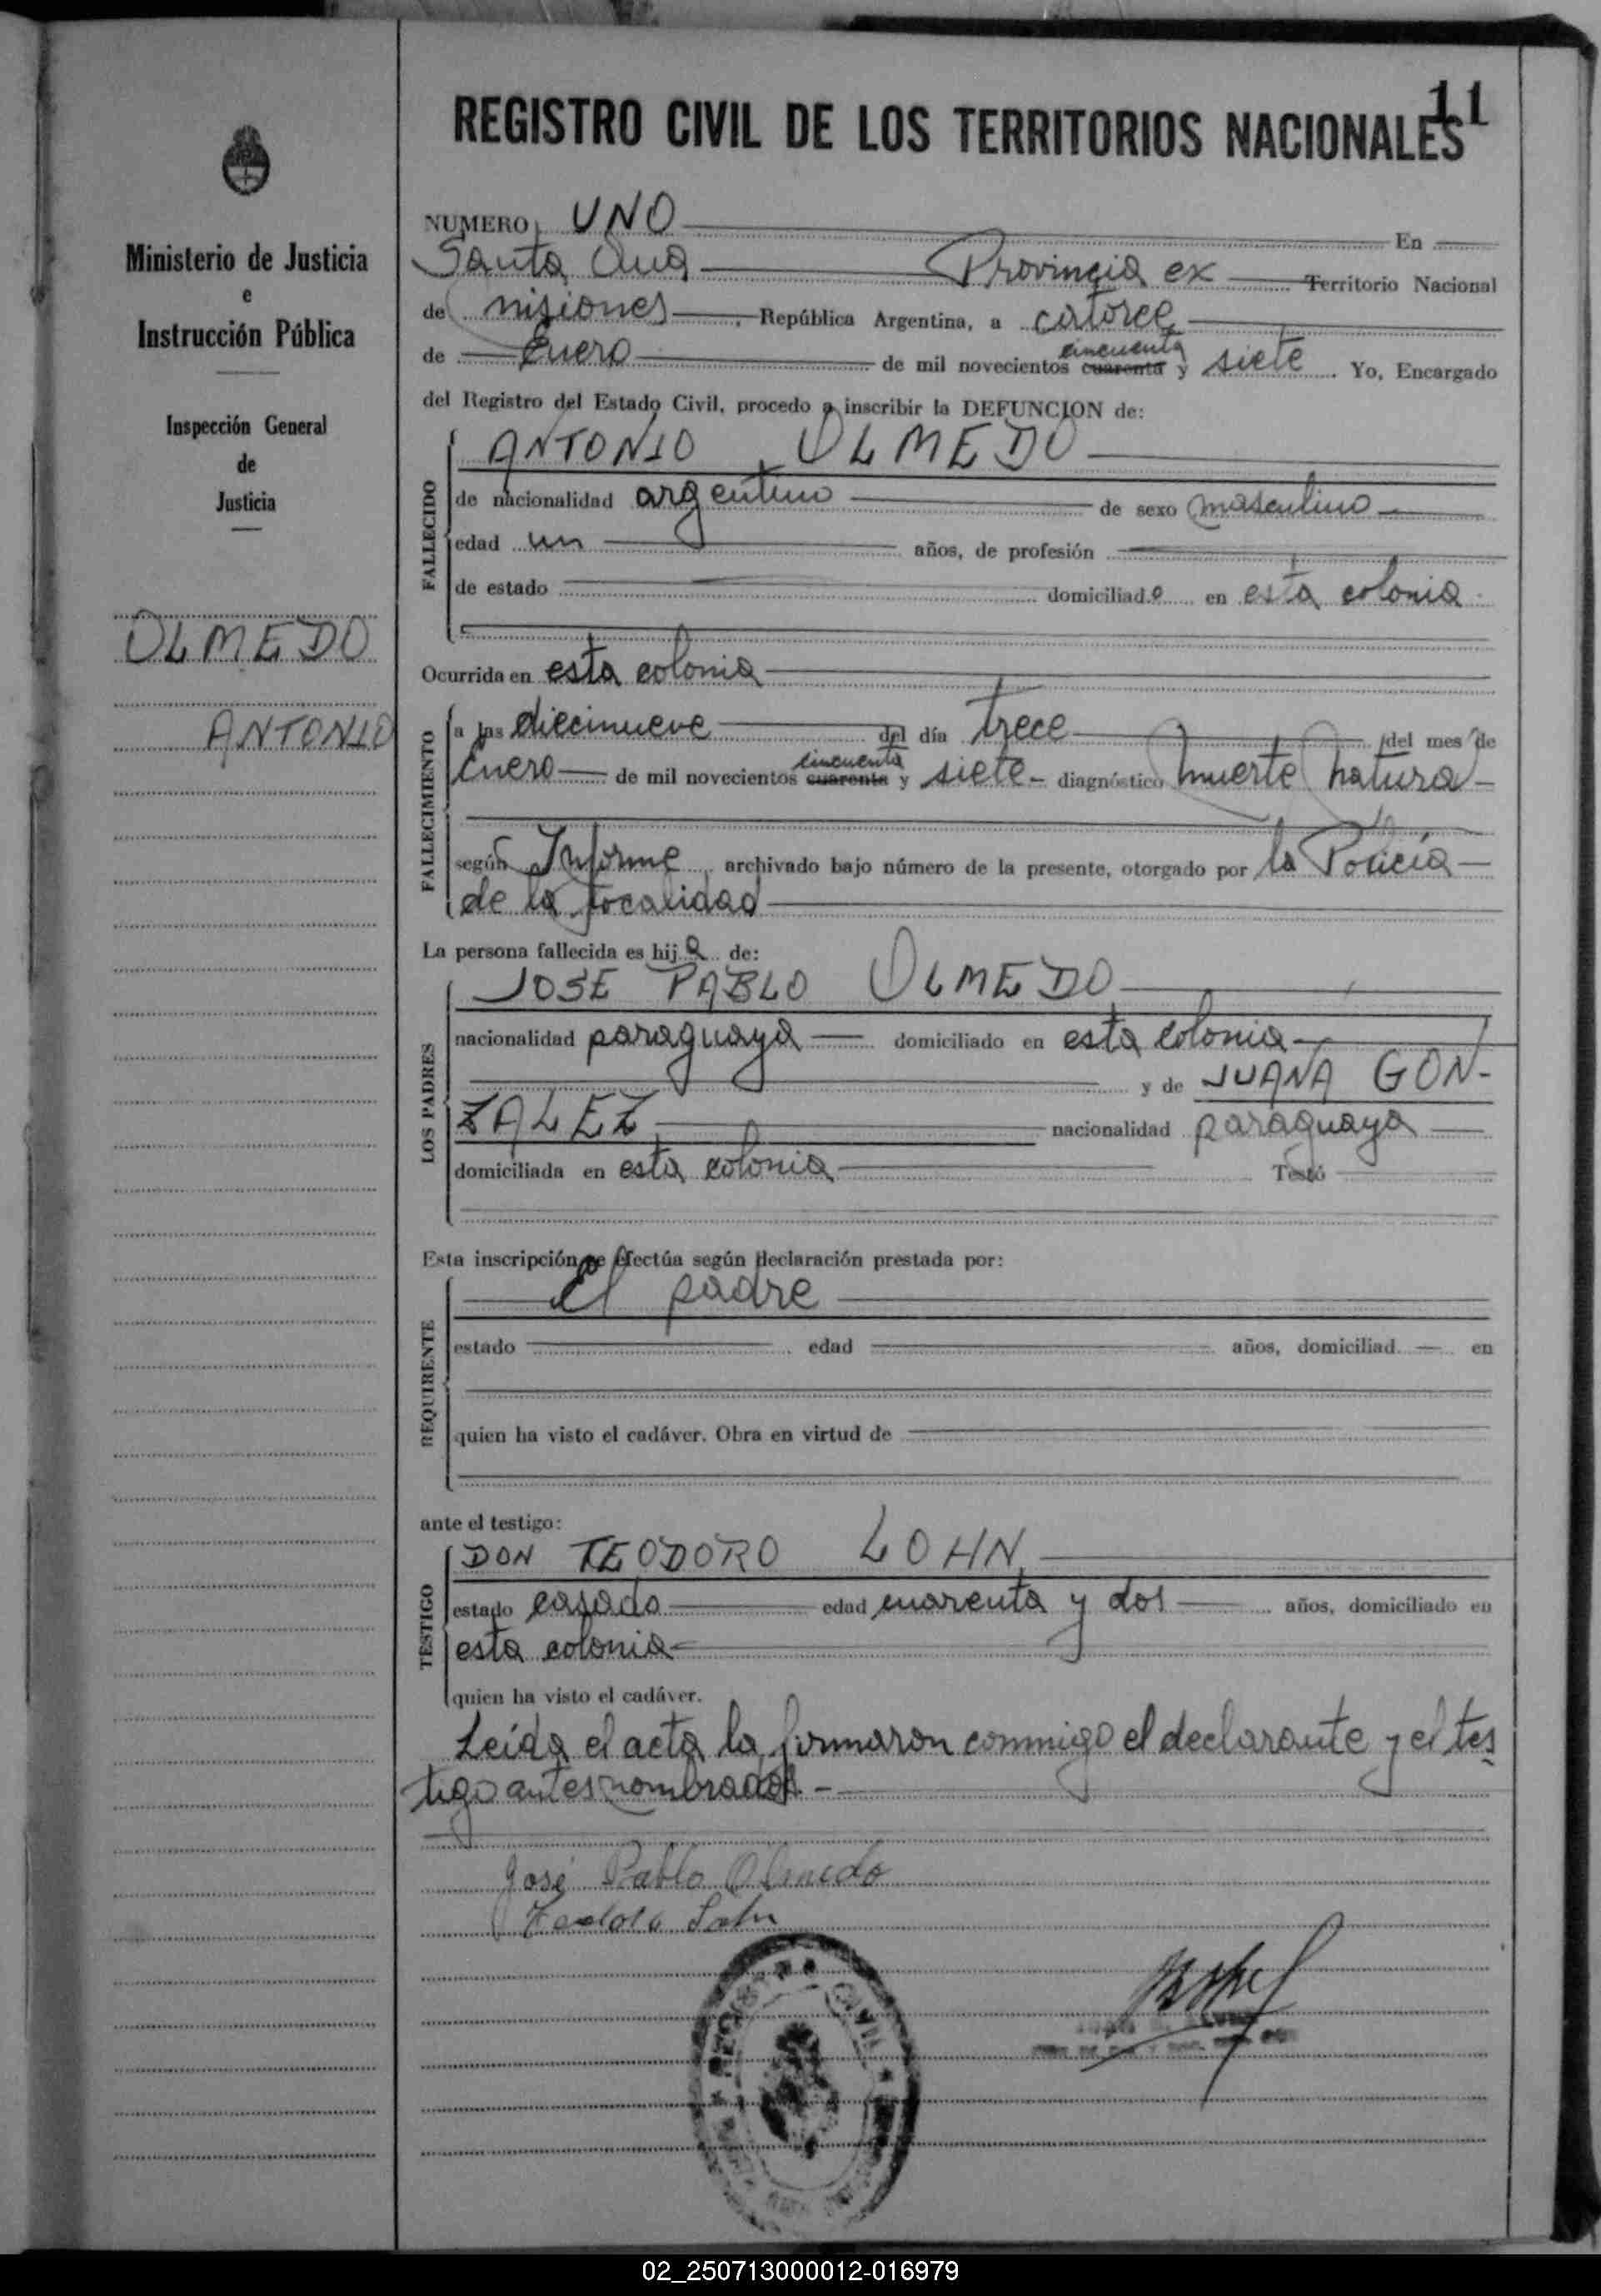 11
REGISTRO CIVIL DE LOS TERRITORIOS NACIONALES
Ministerio de Justicia
e
Instrucción Pública
Inspección General
de
Justicia
OLMEDO
ANTONIO
NUMERO UNO En
Santa Ana Provincia ex Territorio Nacional
de misiones, República Argentina, a catorce
de Enero de mil novecientos cuarenta cincuenta y siete. Yo, Encargado
del Registro del Estado Civil, procedo a inscribir la DEFUNCION de:
FALLECIDO
ANTONIO OLMEDO
de nacionalidad argentino de sexo masculino
edad un años, de profesión
de estado domiciliado en esta colonia
Ocurrida en esta colonia
FALLECIMIENTO
a las diecinueve del día trece del mes de
Enero de mil novecientos cuarenta cincuenta y siete diagnóstico muerte natura-
l
según Informe, archivado bajo número de la presente, otorgado por la Policía
de la localidad
La persona fallecida es hijo de:
LOS PADRES
JOSE PABLO OLMEDO
nacionalidad paraguaya domiciliado en esta colonia
y de JUANA GON-
ZALEZ nacionalidad paraguaya
domiciliada en esta colonia Testó
Esta inscripción se efectúa según declaración prestada por:
REQUIRENTE
el padre
estado edad años, domiciliad en
quien ha visto el cadáver. Obra en virtud de
ante el testigo:
TESTIGO
DON TEODORO LOHN
estado casado edad cuarenta y dos años, domiciliado en
esta colonia
quien ha visto el cadáver.
Leída el acta la firmaron conmigo el declarante y el tes
tigo antes nombrados -
José Pablo Olmedo
REGISTRO CIVIL
02_250713000012-016979